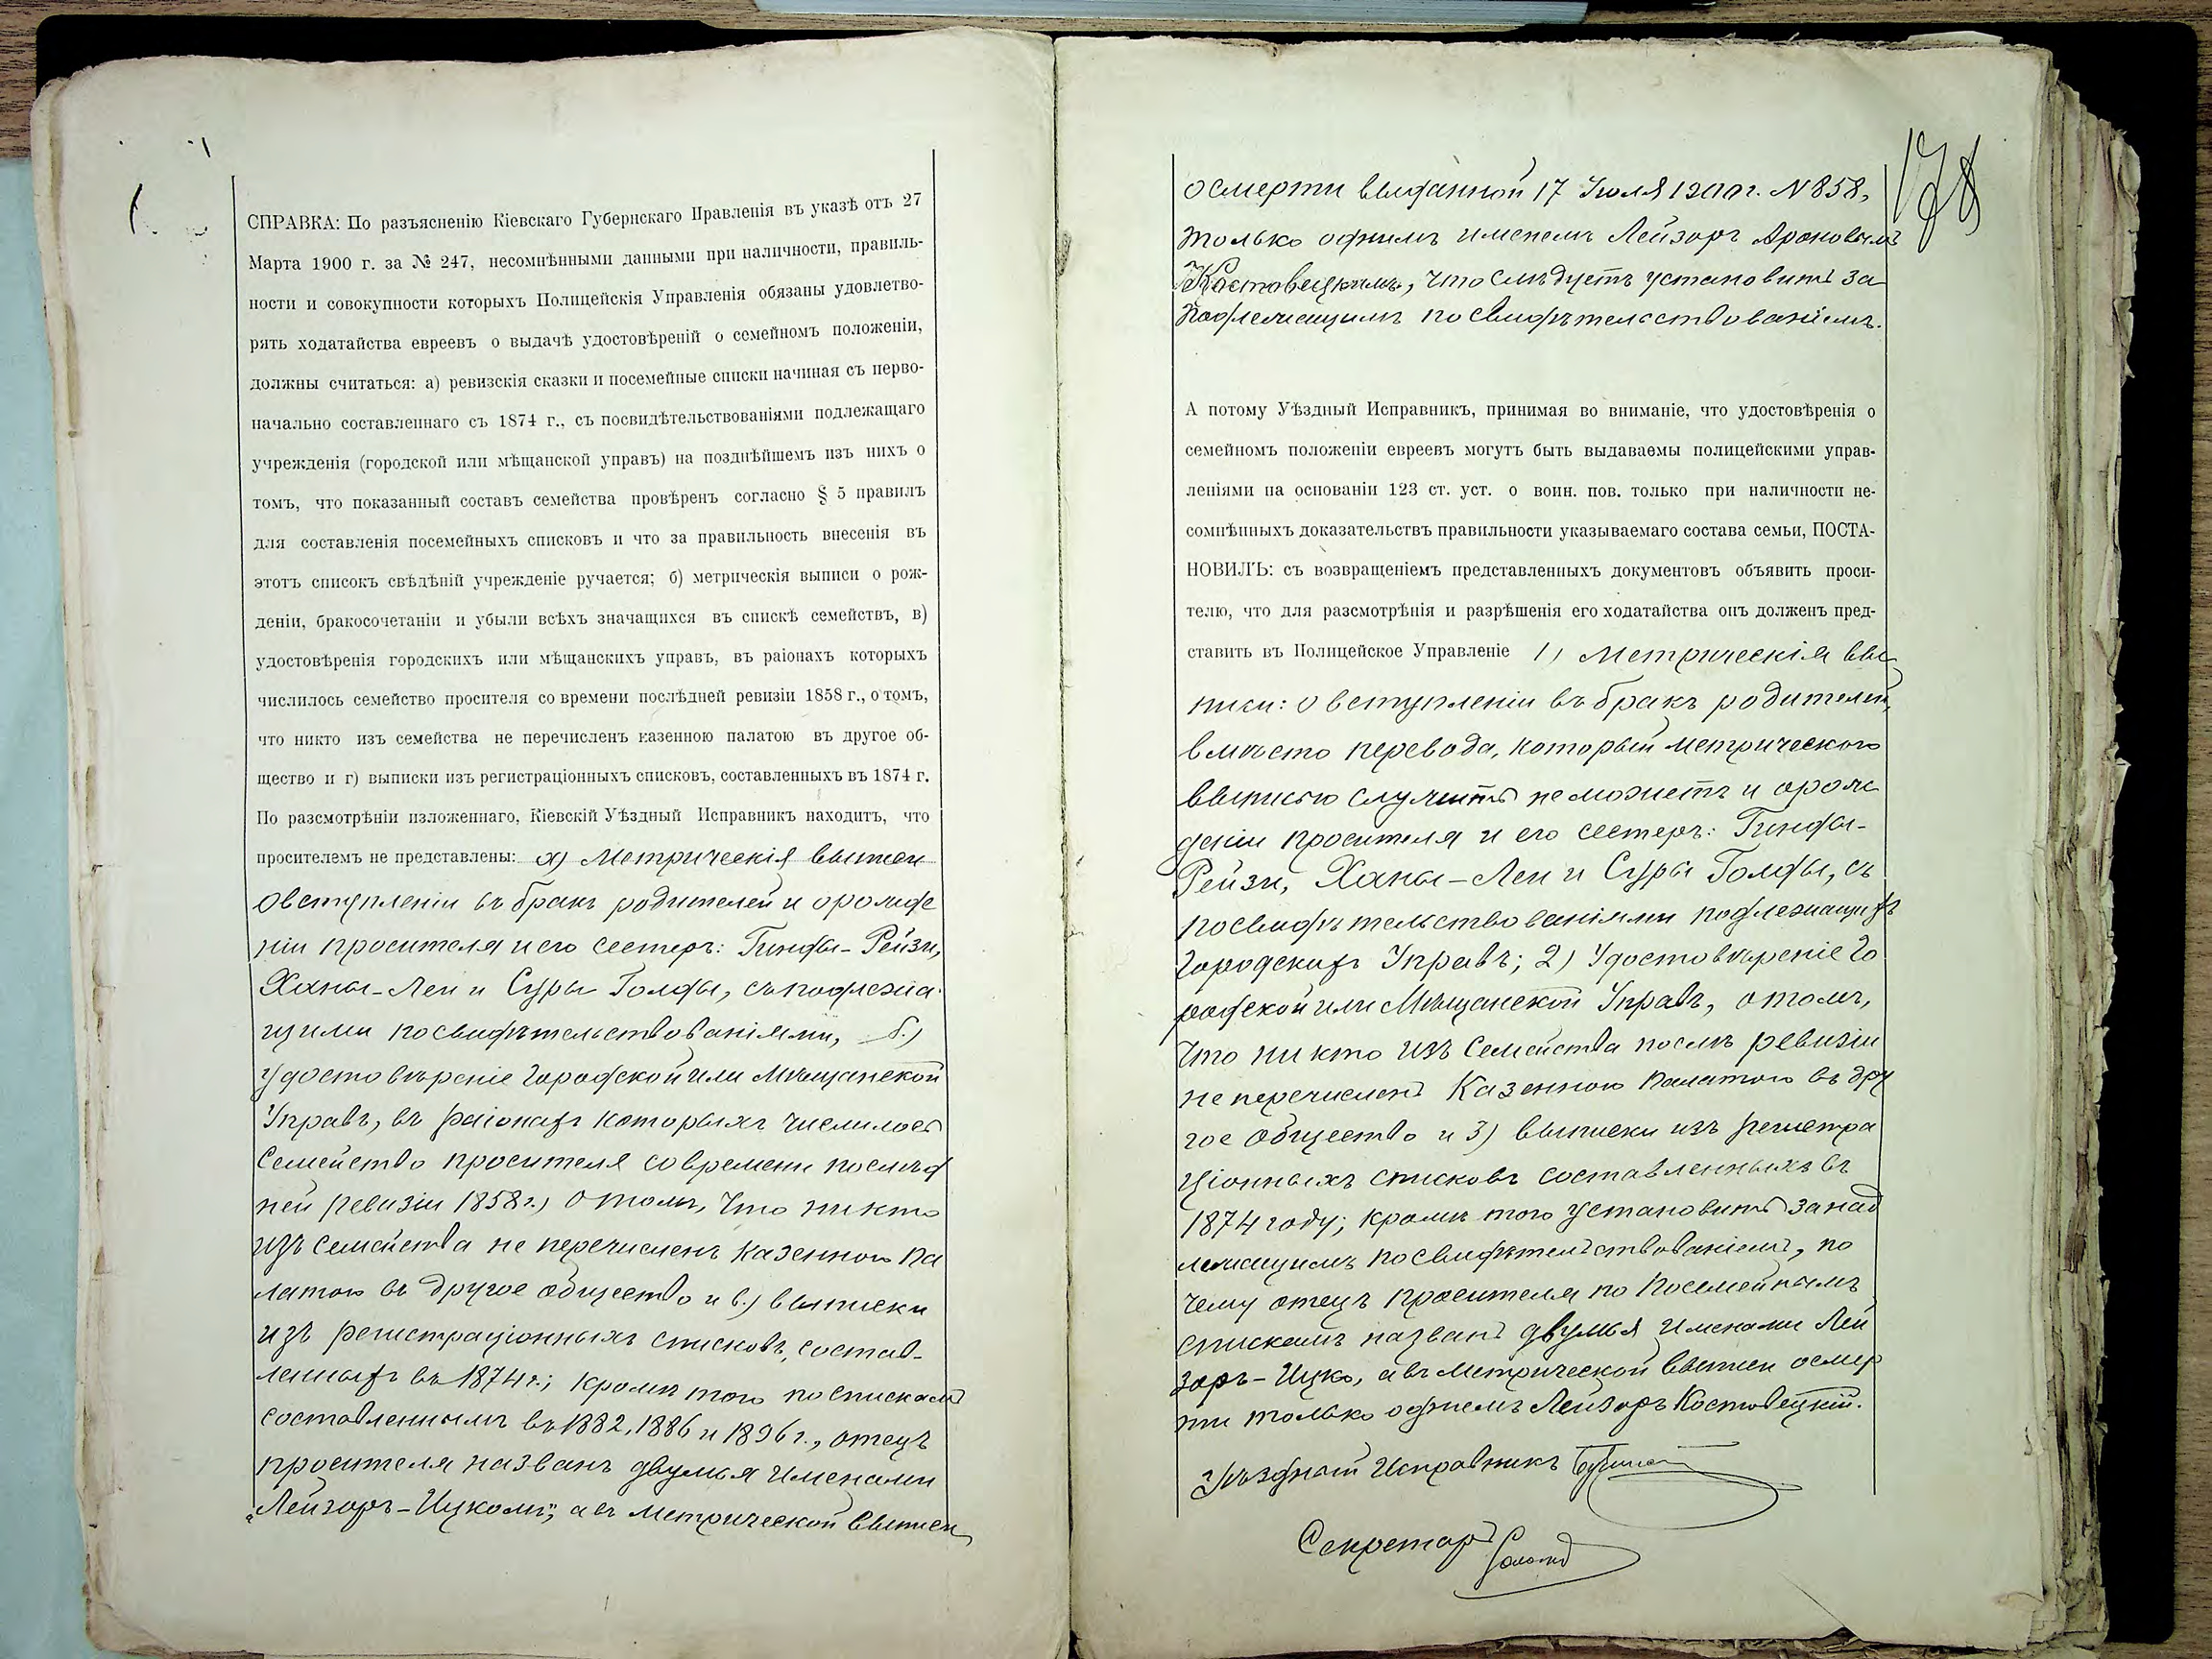 СПРАВКА: По разъясненію Кіевскаго Губернскаго Правленія въ указѣ отъ 27
Марта 1900 г. за № 247, несомнѣнными данными при наличности, правиль-
ности и совокупности которыхъ Полицейскія Управленія обязаны удовлетво-
рять ходатайства евреевъ о выдачѣ удостовѣреній о семейномъ положеніи,
должны считаться: а) ревизскія сказки и посемейные списки начиная съ перво-
начально составленнаго съ 1874 г., съ посвидѣтельствованіями подлежащаго
учрежденія (городской или мѣщанской управъ) на позднѣйшемъ изъ нихъ о
томъ, что показанный составъ семейства провѣренъ согласно § 5 правилъ
для составленія посемейныхъ списковъ и что за правильность внесенія въ
этотъ списокъ свѣдѣній учрежденіе ручается; б) метрическія выписи о рож-
деніи, бракосочетаніи и убыли всѣхъ значащихся въ спискѣ семействъ, в)
удостовѣренія городскихъ или мѣщанскихъ управъ, въ раіонахъ которыхъ
числилось семейство просителя со времени послѣдней ревизіи 1858 г., о томъ,
что никто изъ семейства не перечисленъ казенною палатою въ другое об-
щество и г) выписки изъ регистраціонныхъ списковъ, составленныхъ въ 1874 г.
По разсмотрѣніи изложеннаго, Кіевскій Уѣздный Исправникъ находитъ, что
просителемъ не представлены: а) Метрическія выписи
о вступленіи въ бракъ родителей и о рожде
ніи просителя и его сестеръ: Гинды-Рейзи,
Ханы-Леи и Суры Голды, съ подлежа
щими посвидѣтельствованіями, б.)
Удостовѣреніе Городской или Мѣщанской
Управъ, въ раіонахъ которыхъ числилось
Семейство просителя со времени послѣд
ней ревизіи 1858 г.) о томъ, что никто
изъ семейства не перечисленъ Казенною Па
латою въ другое общество и в.) выписки
изъ регистраціонныхъ списковъ, состав-
ленныхъ въ 1874 г.; кромѣ того по спискамъ
составленнымъ въ 1882, 1886 и 1896 г., отецъ
просителя названъ двумя именами
"Лейзоръ-Ицкомъ", а въ метрической выписи
178
о смерти выданной 17 Июля 1900 г. N 858,
только однимъ именемъ Лейзоръ Ароновымъ
Костовецкимъ, что слѣдуетъ установить за
подлежащимъ посвидѣтельствованіемъ.
А потому Уѣздный Исправникъ, принимая во вниманіе, что удостовѣренія о
семейномъ положеніи евреевъ могутъ быть выдаваемы полицейскими управ-
леніями на основаніи 123 ст. уст. о воин. пов. только при наличности не-
сомнѣнныхъ доказательствъ правильности указываемаго состава семьи, ПОСТА-
НОВИЛЪ: съ возвращеніемъ представленныхъ документовъ объявить проси-
телю, что для разсмотрѣнія и разрѣшенія его ходатайства онъ долженъ пред-
ставить въ Полицейское Управленіе 1) Метрическія вы
писи: о вступленіи въ бракъ родителей,
вмѣсто перевода, который метрическою
выписью служить не можетъ и о рож
деніи просителя и его сестеръ: Гинды-
Рейзи, Ханы-Леи и Суры Голды, съ
посвидѣтельствованіями подлежащихъ
Городскихъ Управъ; 2) Удостовѣреніе Го
родской или Мѣщанской Управъ, о томъ,
что никто изъ Семейства послѣ ревизіи
не перечисленъ Казенною палатою въ дру
гое общество и 3) выписки изъ регистра
ціонныхъ списковъ составленныхъ въ
1874 году; кромѣ того установить за над
лежащимъ посвидѣтельствованіемъ, по
чему отецъ просителя по посемейнымъ
спискамъ названъ двумя именами Лей
зоръ-Ицко, а въ Метрической выписи о смер
ти только однимъ Лейзоръ Костовецкій.
Уѣздный Исправникъ
Секретарь